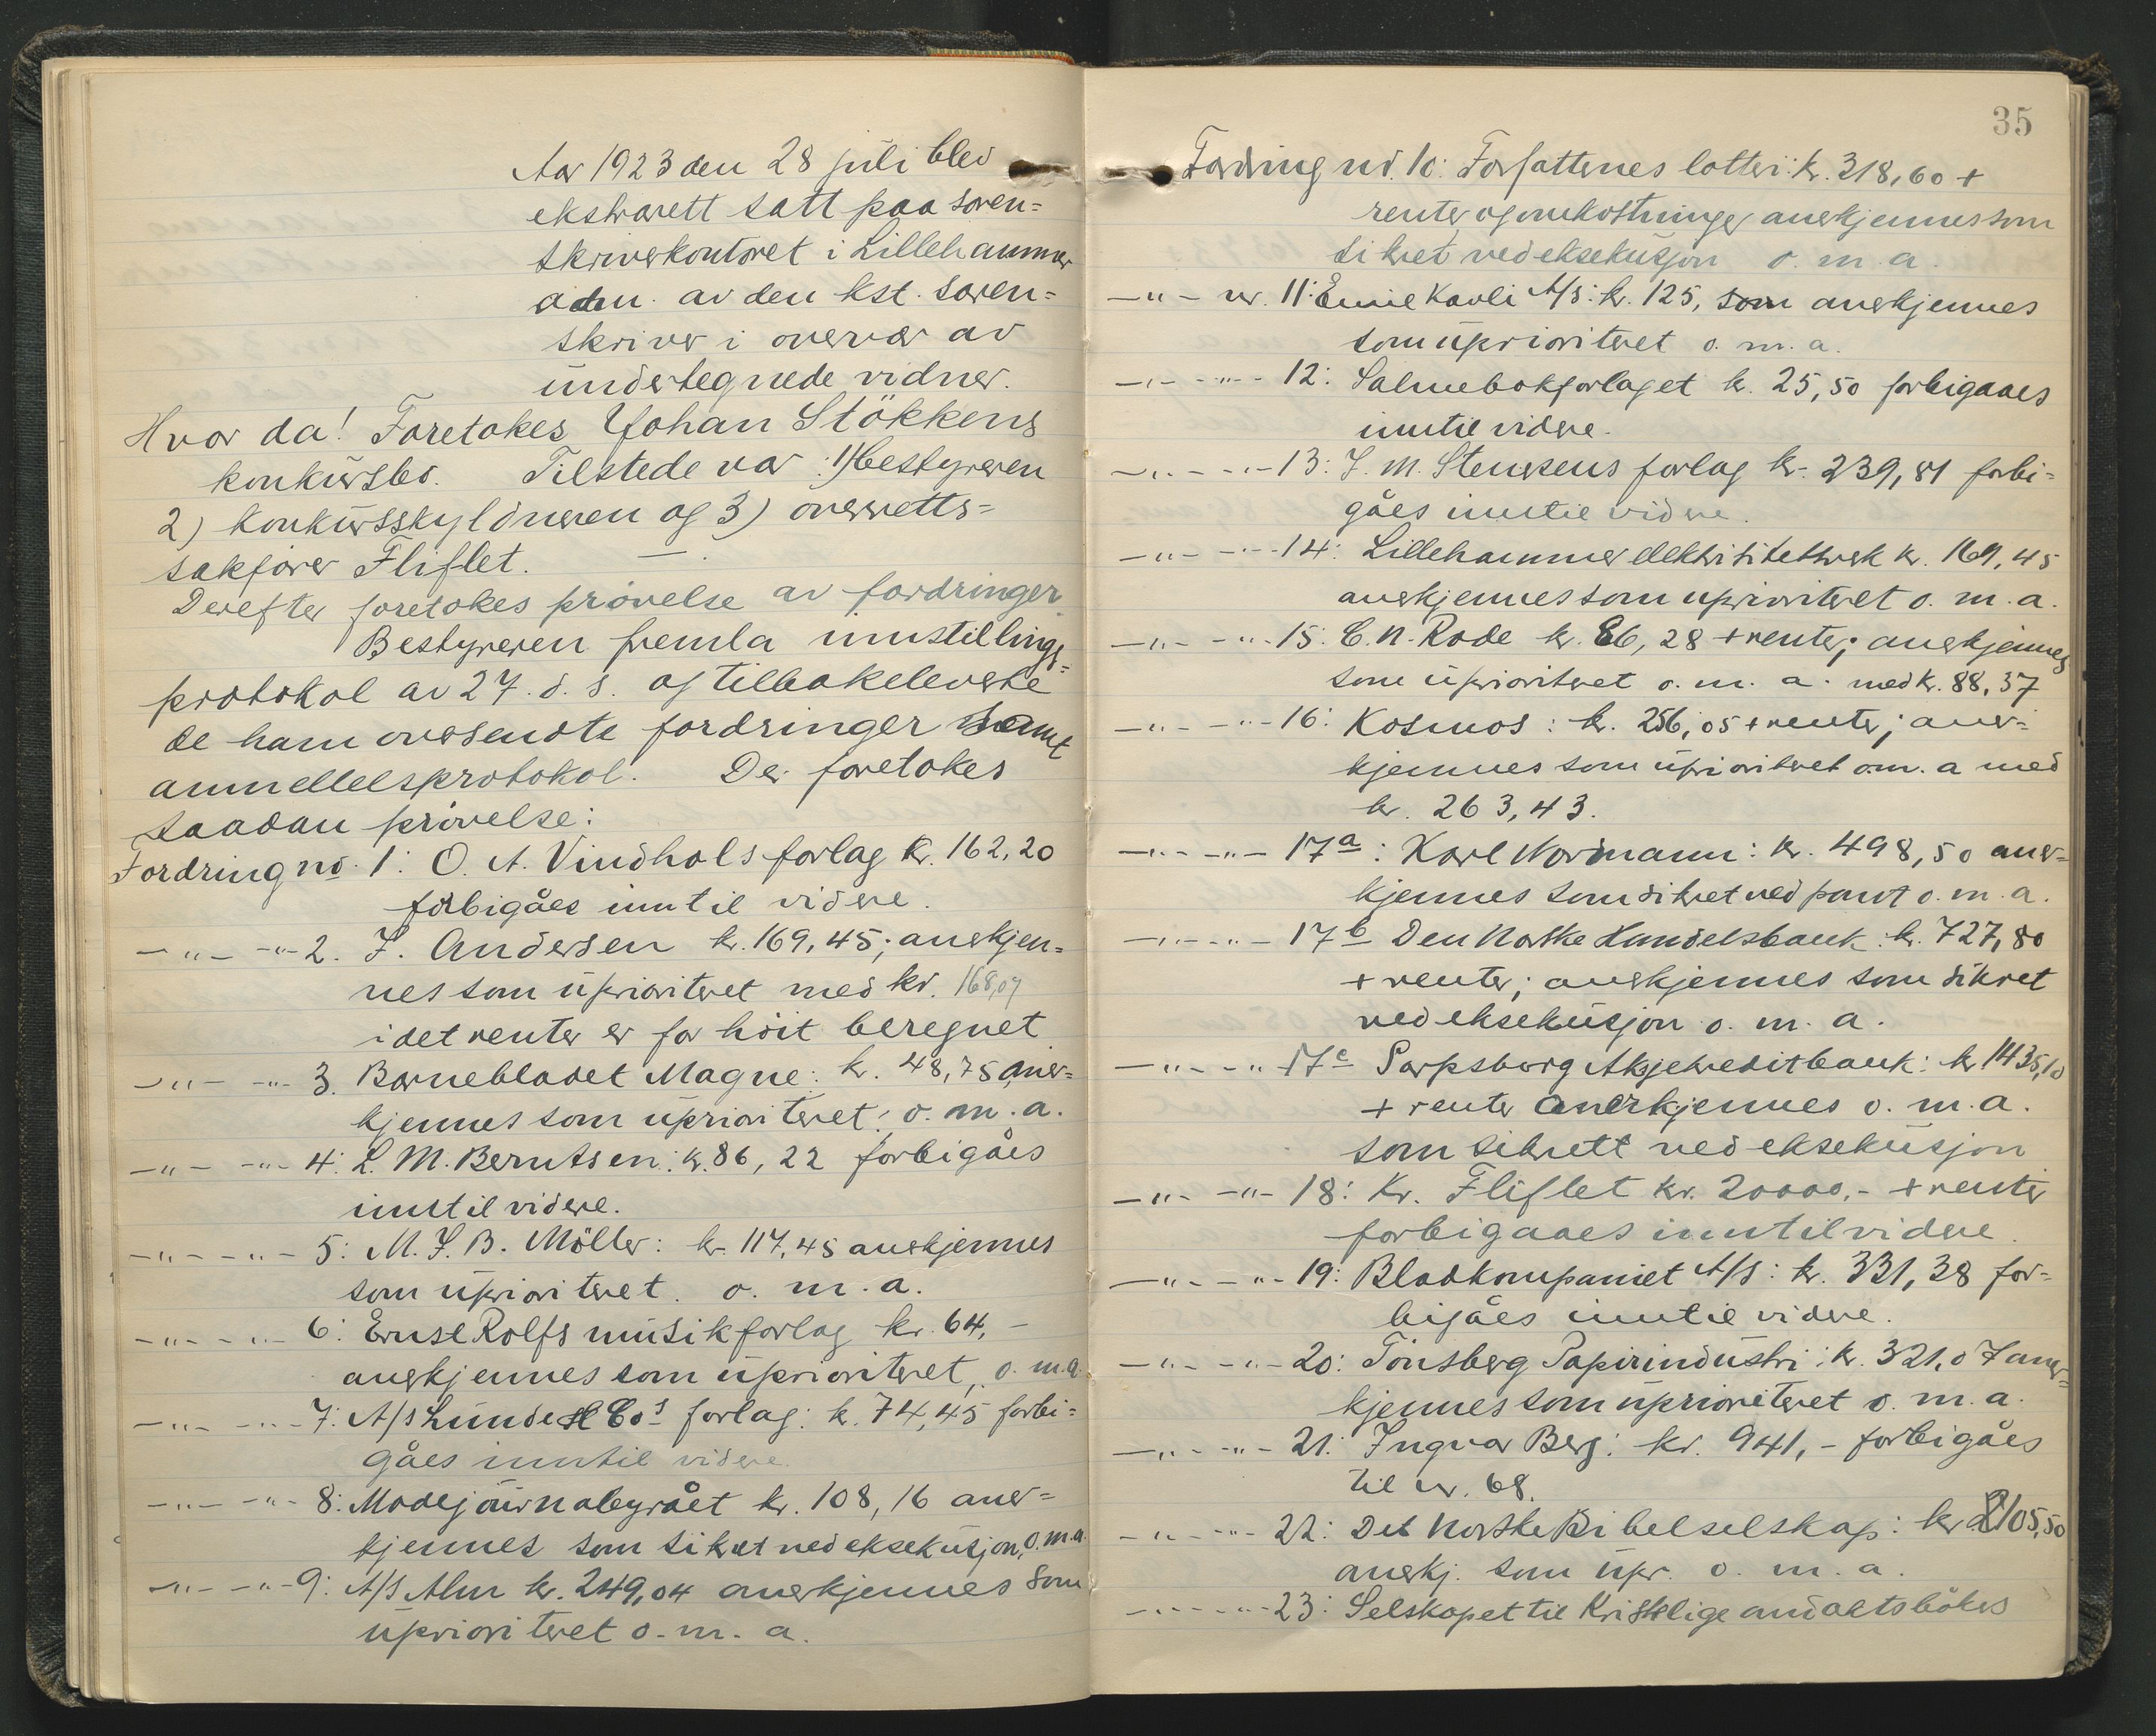 Aar 1923 den 28 juli blev
ekstrarett satt paa soren=
skriverkontoret i Lillehammer
adm. av den kst. soren=
skriver i overvær av
undertegnede vidner.
Hvor da! Foretokes Johan Stökkens
konkursbo. Tilstede var: 1) bestyreren
2) konkursskyldneren og 3) overretts=
sakfører Fliflet. —.
Derefter foretokes prøvelse av fordringer.
Bestyreren fremla innstillings=
protokol av 27. d. s. og tilbakeleverte
de ham oversendte fordringer samt
anmeldelsprotokol. Der foretokes
saadan prøvelse:
Fordring no. 1: O. A. Vindhols forlag kr. 162,20
forbigåes inntil videre.
—"— —"— 2. J. Andersen kr. 169,45; anerkjen=
nes som uprioritert med kr. 168,09
idet renter er for höit beregnet
—"— —"— 3. Barnebladet Magne: kr. 48,75 aner=
kjennes som uprioriteret; o. m. a.
—"— —"— 4: L. M. Berntsen: kr. 86,22 forbigåes
inntil videre.
—"— —"— 5: M. J. B. Möller: kr. 117,45 anerkjennes
som uprioriteret. o. m. a.
—"— —"— 6: Ernst Rolfs musikforlag kr. 64,-
anerkjennes som uprioriteret, o. m. a.
—"— —"— 7: A/S Lunde & Cos forlag: kr. 74,45 forbi=
gåes inntil videre.
—"— —"— 8: Modejournalbyrået kr. 108,16 aner=
kjennes som sikret ved eksekusjon, o. m. a.
—"— —"— 9: A/S Alm kr. 249,04 anerkjennes som
uprioriteret o. m. a.
35
Fordring nr. 10: Forfatternes lotteri: kr. 318,60 +
renter og omkostninger anerkjennes som
sikret ved eksekusjon o. m. a.
—"— nr. 11: Emil Kavli A/S: kr. 125, som anerkjennes
som uprioriteret o. m. a.
—"— —"— 12: Salmebokforlaget kr. 25,50 forbigaaes
inntil videre.
—"— —"— 13: J. M. Stenersens forlag kr. 239,81 forbi=
gåes inntil videre.
—"— —"— 14: Lillehammer elektrisitetsverk kr. 169,45
anerkjennes som uprioriteret o. m. a.
—"— —"— 15: C. N. Rode kr. 86,28 + renter; anerkjennes
som uprioriteret o. m. a. med kr. 88,37
—"— —"— 16: Kosmos: kr. 256,05 + renter; aner=
kjennes som uprioriteret o. m. a med
kr. 263,43.
—"— —"— 17a: Karl Normann: kr. 498,50 aner=
kjennes som sikret ved pant o. m. a.
—"— —"— 17b Den Norske Handelsbank: kr. 727,80
+ renter; anerkjennes som sikret
ved eksekusjon o. m. a.
—"— —"— 17c Sarpsborg Aksjekreditbank: kr 1435,10
+ renter anerkjennes o. m. a.
som sikrett ved eksekusjon
—"— —"— 18: Kr. Fliflet kr. 20000,- + renter
forbigaaes inntil videre.
—"— —"— 19: Bladkompaniet A/S: kr. 331,38 for=
bigåes inntil videre.
—"— —"— 20: Tönsberg Papirindustri: kr. 321,07 aner=
kjennes som uprioriteret o. m. a.
—"— —"— 21: Ingvar Berg: kr. 941,- forbigåes
til nr. 68.
—"— —"— 22: Det norske Bibelselskap: kr 2105,50
anerkj. som upr. o. m. a.
—"— —"— 23: Selskapet til Kristelige andaktsbökers